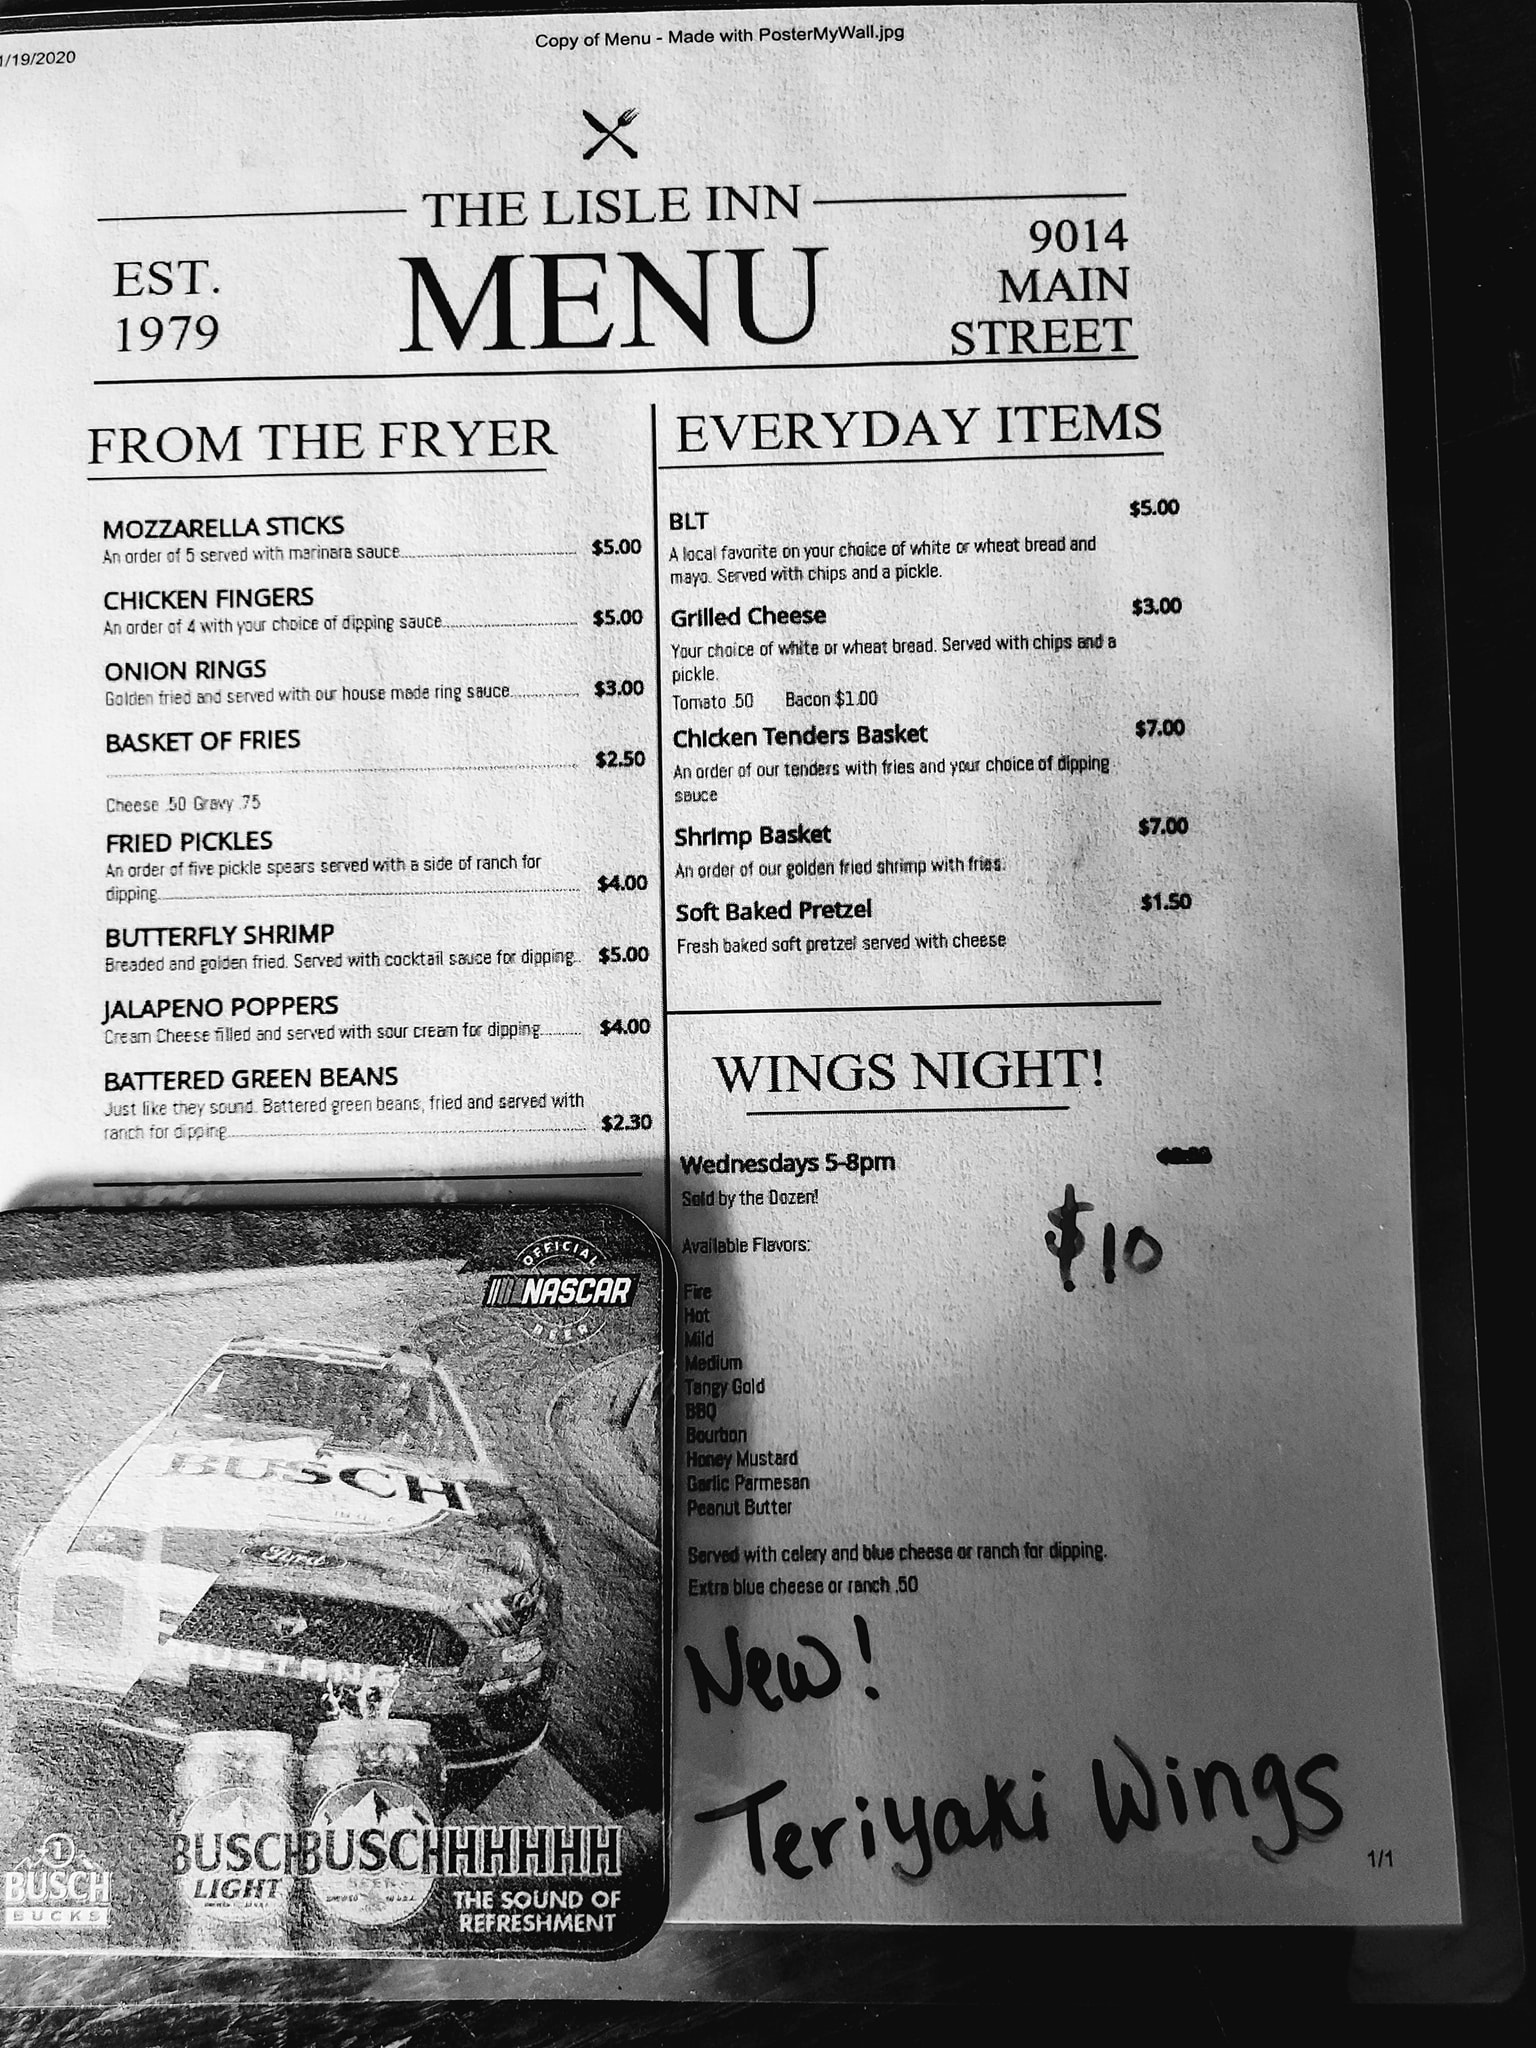 1/19/2020
Copy of Menu - Made with PosterMyWall.jpg
THE LISLE INN
EST.
1979
MENU
9014
MAIN
STREET
FROM THE FRYER
MOZZARELLA STICKS
An order of 5 served with marinara sauce $5.00
CHICKEN FINGERS
An order of 4 with your choice of dipping sauce $5.00
ONION RINGS
Golden fried and served with our house made ring sauce $3.00
BASKET OF FRIES
$2.50
Cheese .50 Gravy .75
FRIED PICKLES
An order of five pickle spears served with a side of ranch for
dipping $4.00
BUTTERFLY SHRIMP
Breaded and golden fried. Served with cocktail sauce for dipping $5.00
JALAPENO POPPERS
Cream Cheese filled and served with sour cream for dipping $4.00
BATTERED GREEN BEANS
Just like they sound. Battered green beans, fried and served with
ranch for dipping $2.30
EVERYDAY ITEMS
BLT $5.00
A local favorite on your choice of white or wheat bread and
mayo. Served with chips and a pickle.
Grilled Cheese $3.00
Your choice of white or wheat bread. Served with chips and a
pickle.
Tomato .50 Bacon $1.00
Chicken Tenders Basket $7.00
An order of our tenders with fries and your choice of dipping
sauce
Shrimp Basket $7.00
An order of our golden fried shrimp with fries.
Soft Baked Pretzel $1.50
Fresh baked soft pretzel served with cheese
WINGS NIGHT!
Wednesdays 5-8pm
Sold by the Dozen!
$10
Available Flavors:
Fire
Hot
Mild
Medium
Tangy Gold
BBQ
Bourbon
Honey Mustard
Garlic Parmesan
Peanut Butter
Served with celery and blue cheese or ranch for dipping.
Extra blue cheese or ranch .50
New!
Teriyaki Wings
1/1
OFFICIAL
NASCAR
BEER
BUSCH
Ford
MUSTANG
1
BUSCH
BUCKS
BUSCH
LIGHT
BUSCHHHHHH
BEER
THE SOUND OF
REFRESHMENT